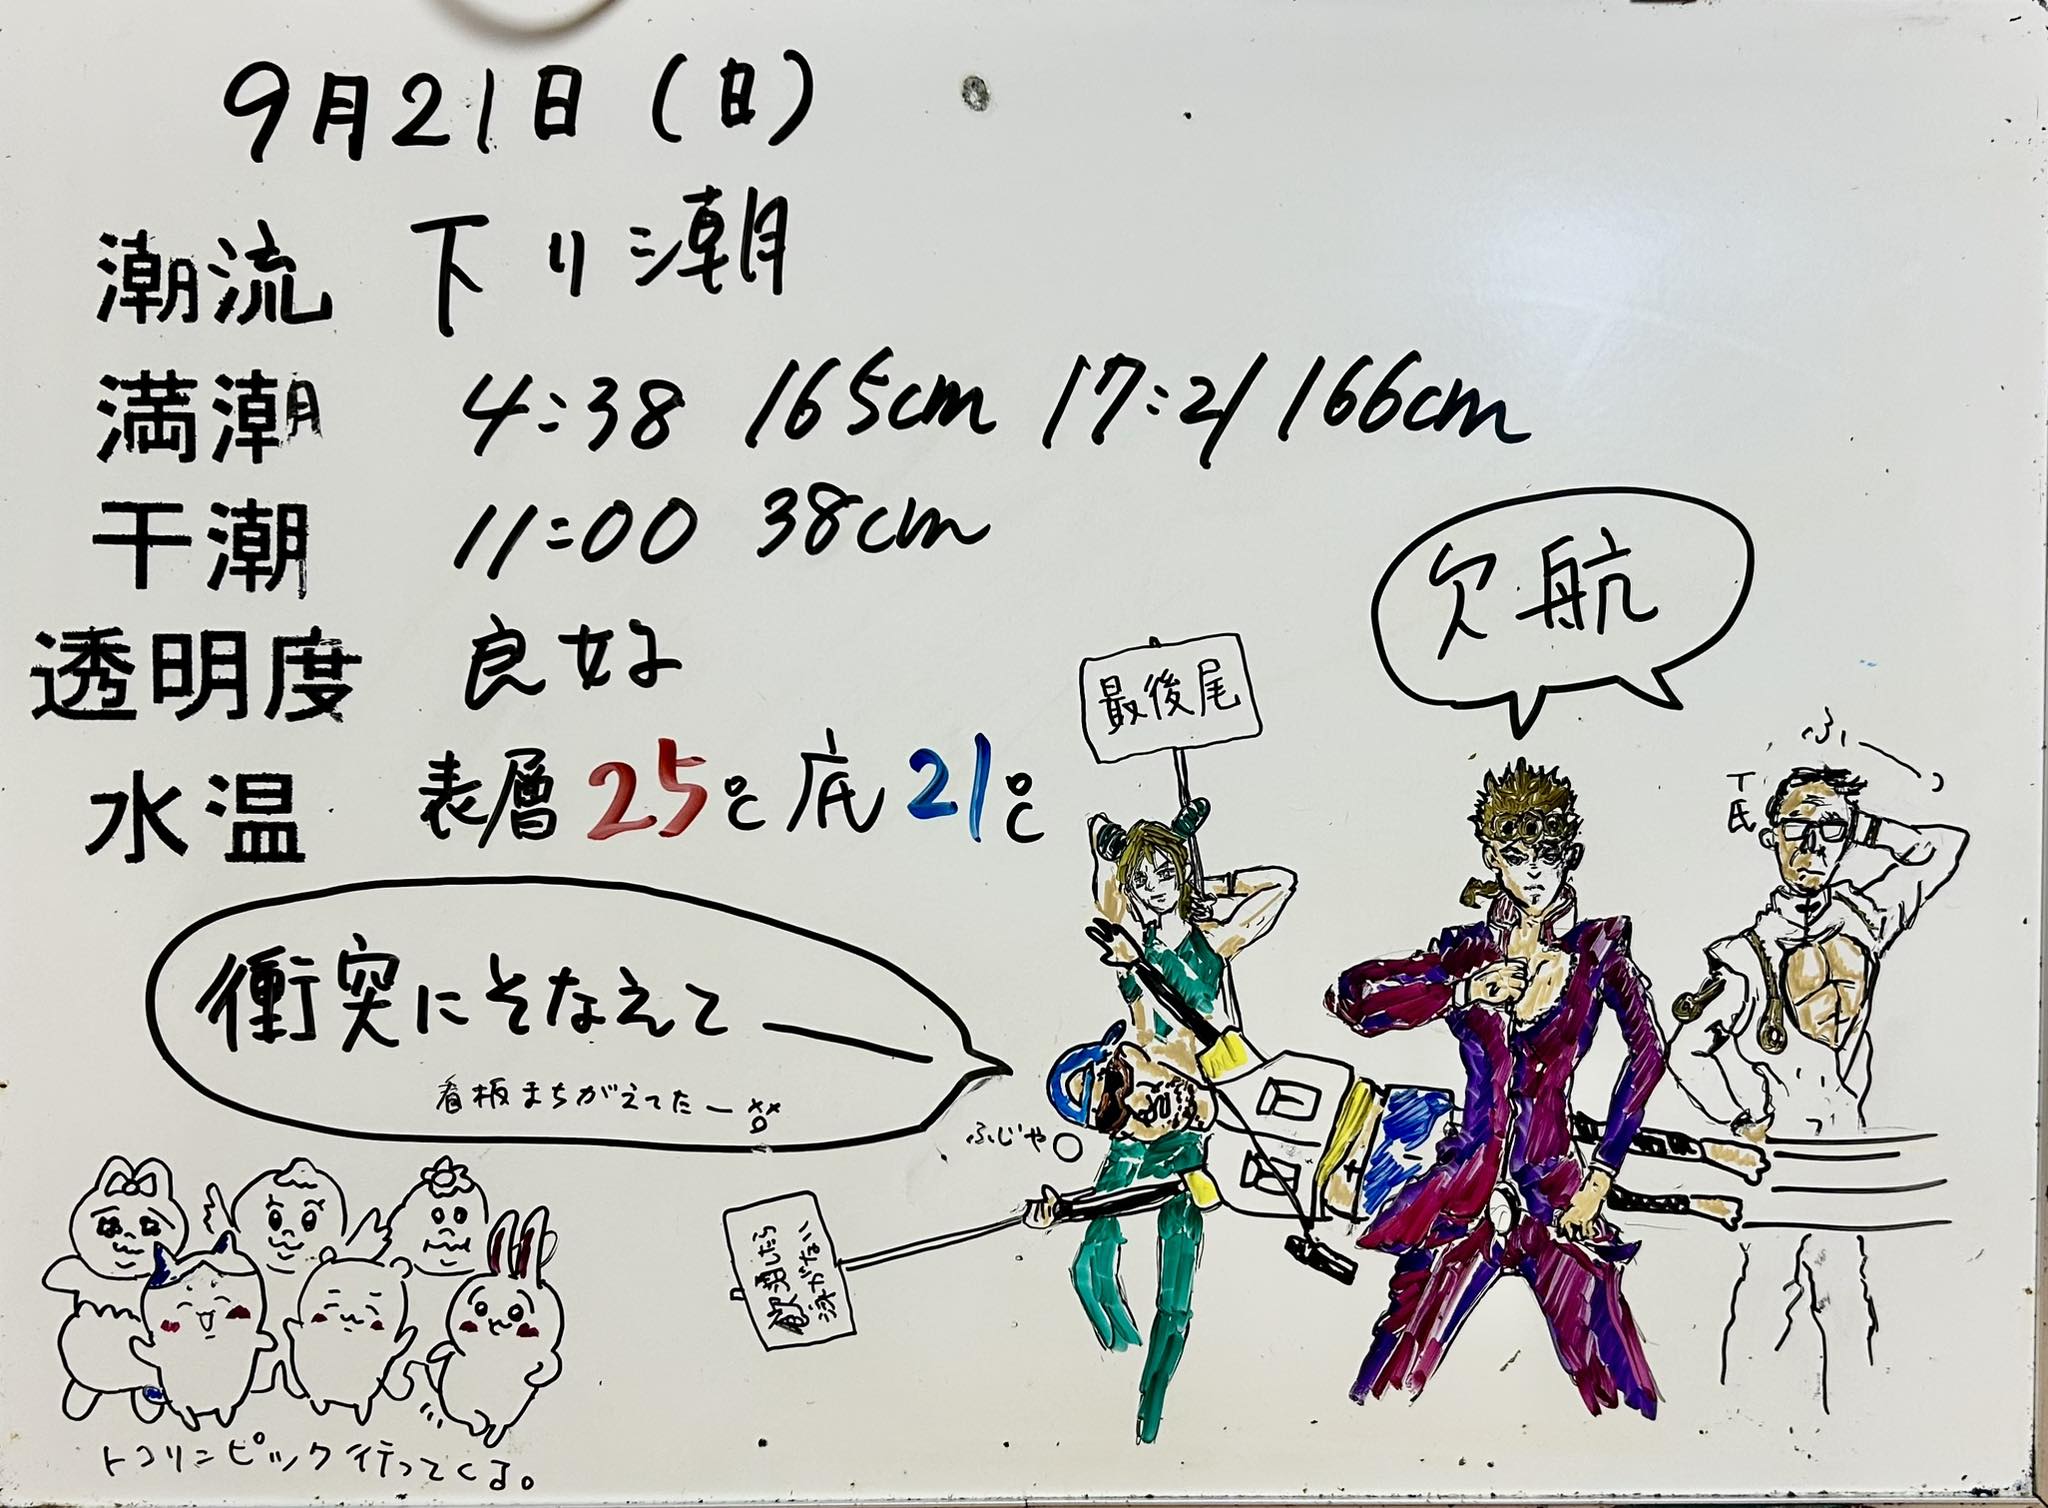 9月21日(日)
潮流 下り潮
満潮 4:38 165cm 17:21 166cm
干潮 11:00 38cm
透明度 良好
水温 表層25℃ 底21℃
欠航
最後尾
ふぅー
T氏
衝突にそなえてー
看板まちがえてたー
ふじや
飲酒したら
泳がない
トコリンピック行ってくる。